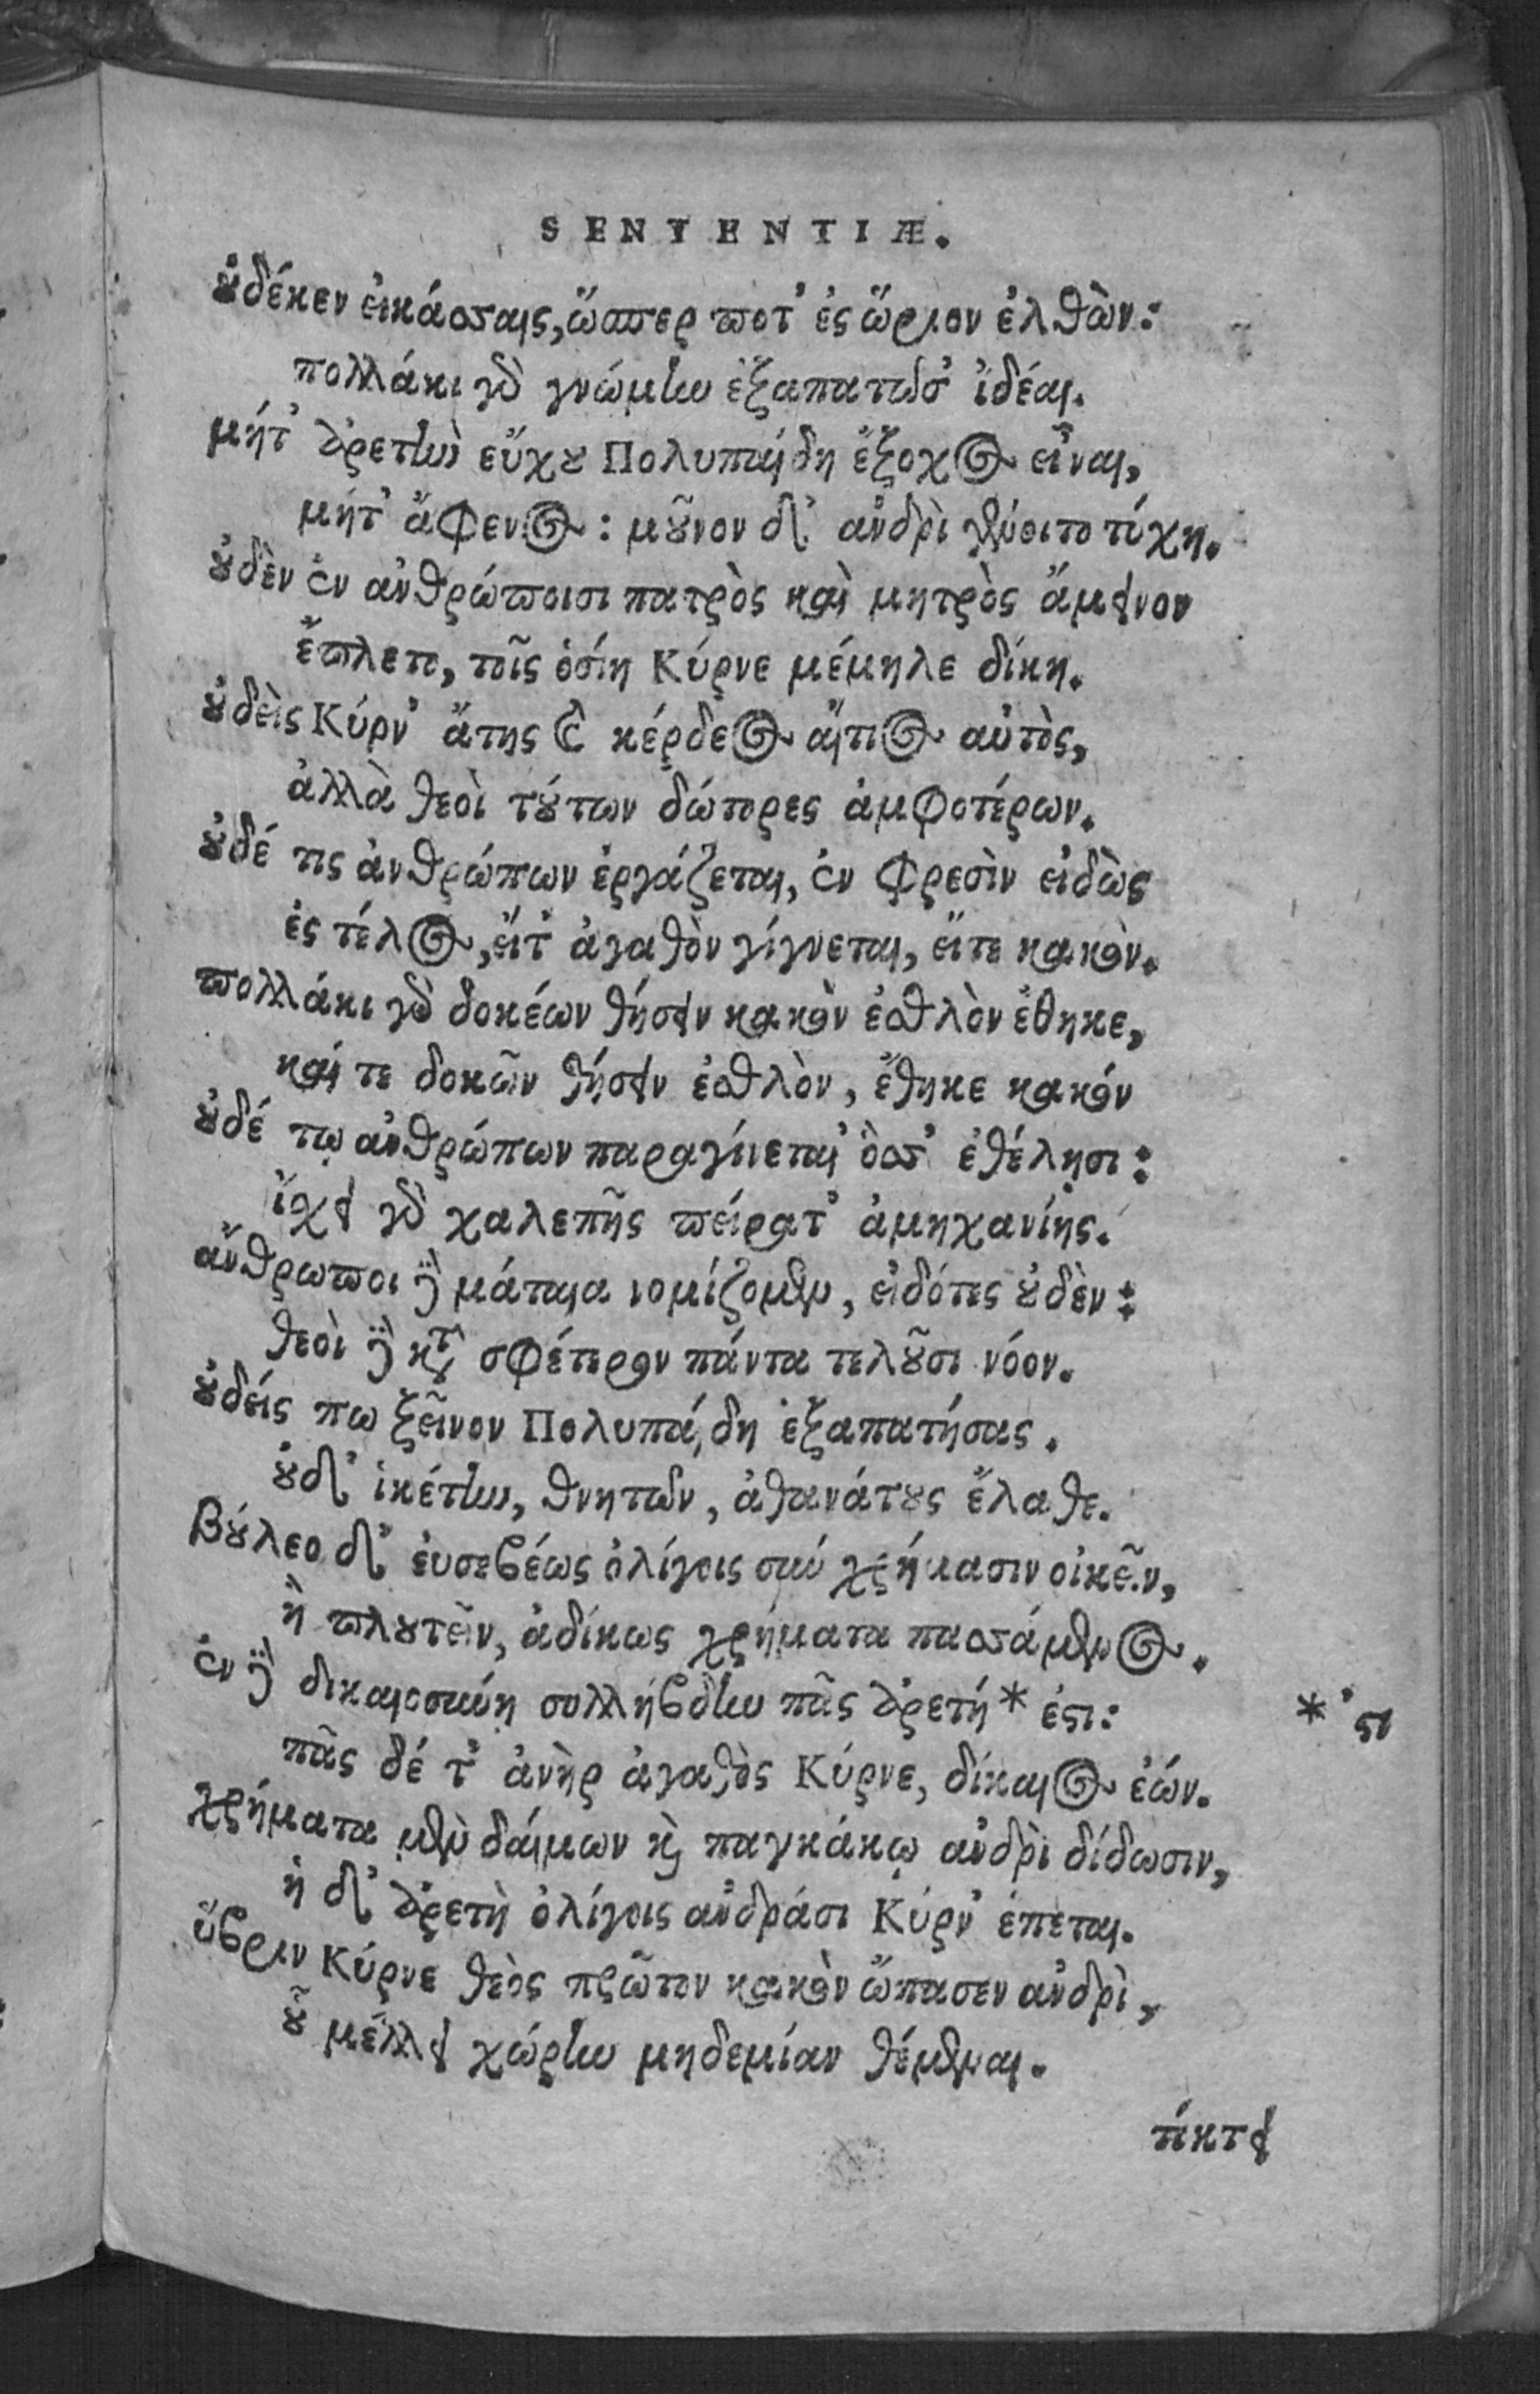 SENTENTIÆ.
ȣδέκεν εἰκάσσαις, ὥσπερ ποτ' ἐς ὥριον ἐλθὼν:
πολλάκι γὸ γνώμην ἐξαπατῶσ' ἰδέαι.
μήτ' ἀρετὴν εὔχȣ Πολυπαίδη ἔξοχος εἶναι,
μήτ' ἄφενος: μȣ͂νον δ' ἀνδρὶ γένοιτο τύχη.
ȣ̓δὲν ἐν ἀνθρώποισι πατρὸς καὶ μητρὸς ἄμεινον
ἔπλετο, τοῖς ὁσίη Κύρνε μέμηλε δίκη.
ȣ̓δεὶς Κύρν' ἄτης ϗ κέρδεος αἴτιος αὐτὸς,
ἀλλὰ θεοὶ τȣ́των δώτορες ἀμφοτέρων.
ȣ̓δέ τις ἀνθρώπων ἐργάζεται, ἐν φρεσὶν εἰδὼς
ἐς τέλος, εἴτ' ἀγαθὸν γίγνεται, εἴτε κακὸν.
πολλάκι γὸ δοκέων θήσειν κακὸν ἐσθλὸν ἔθηκε,
καί τε δοκῶν θήσειν ἐσθλὸν, ἔθηκε κακόν
ȣ̓δέ τῳ ἀνθρώπων παραγίνεται ὅσσ' ἐθέλησι:
ἴχει γὸ χαλεπῆς πείρατ' ἀμηχανίης.
ἄνθρωποι δὲ μάταια νομίζομεν, εἰδότες ȣ̓δὲν:
θεοὶ δὲ κτ̀ σφέτερον πάντα τελȣ͂σι νόον.
ȣ̓δείς πω ξεῖνον Πολυπαίδη ἐξαπατήσας.
ȣ̓δ' ἱκέτην, θνητῶν, ἀθανάτȣς ἔλαθε.
Βȣ́λεο δ' εὐσεβέως ὀλίγοις σὺν χρήμασιν οἰκεῖν,
ἢ πλȣτεῖν, ἀδίκως χρήματα πασσάμενος.
ἐν δὲ δικαιοσύνη συλλήβδην πᾶς ἀρετή* ἐϛι: *'ϛι
πᾶς δέ τ' ἀνὴρ ἀγαθὸς Κύρνε, δίκαιος ἐών.
χρήματα μὲν δαίμων ϗ παγκάκῳ ἀνδρὶ δίδωσιν,
ἡ δ' ἀρετὴ ὀλίγοις ἀνδράσι Κύρν' ἕπεται.
ὕβριν Κύρνε θεὸς πρῶτον κακὸν ὤπασεν ἀνδρὶ,
ȣ̔͂ μέλλει χώρην μηδεμίαν θέμεναι.
τίκτει